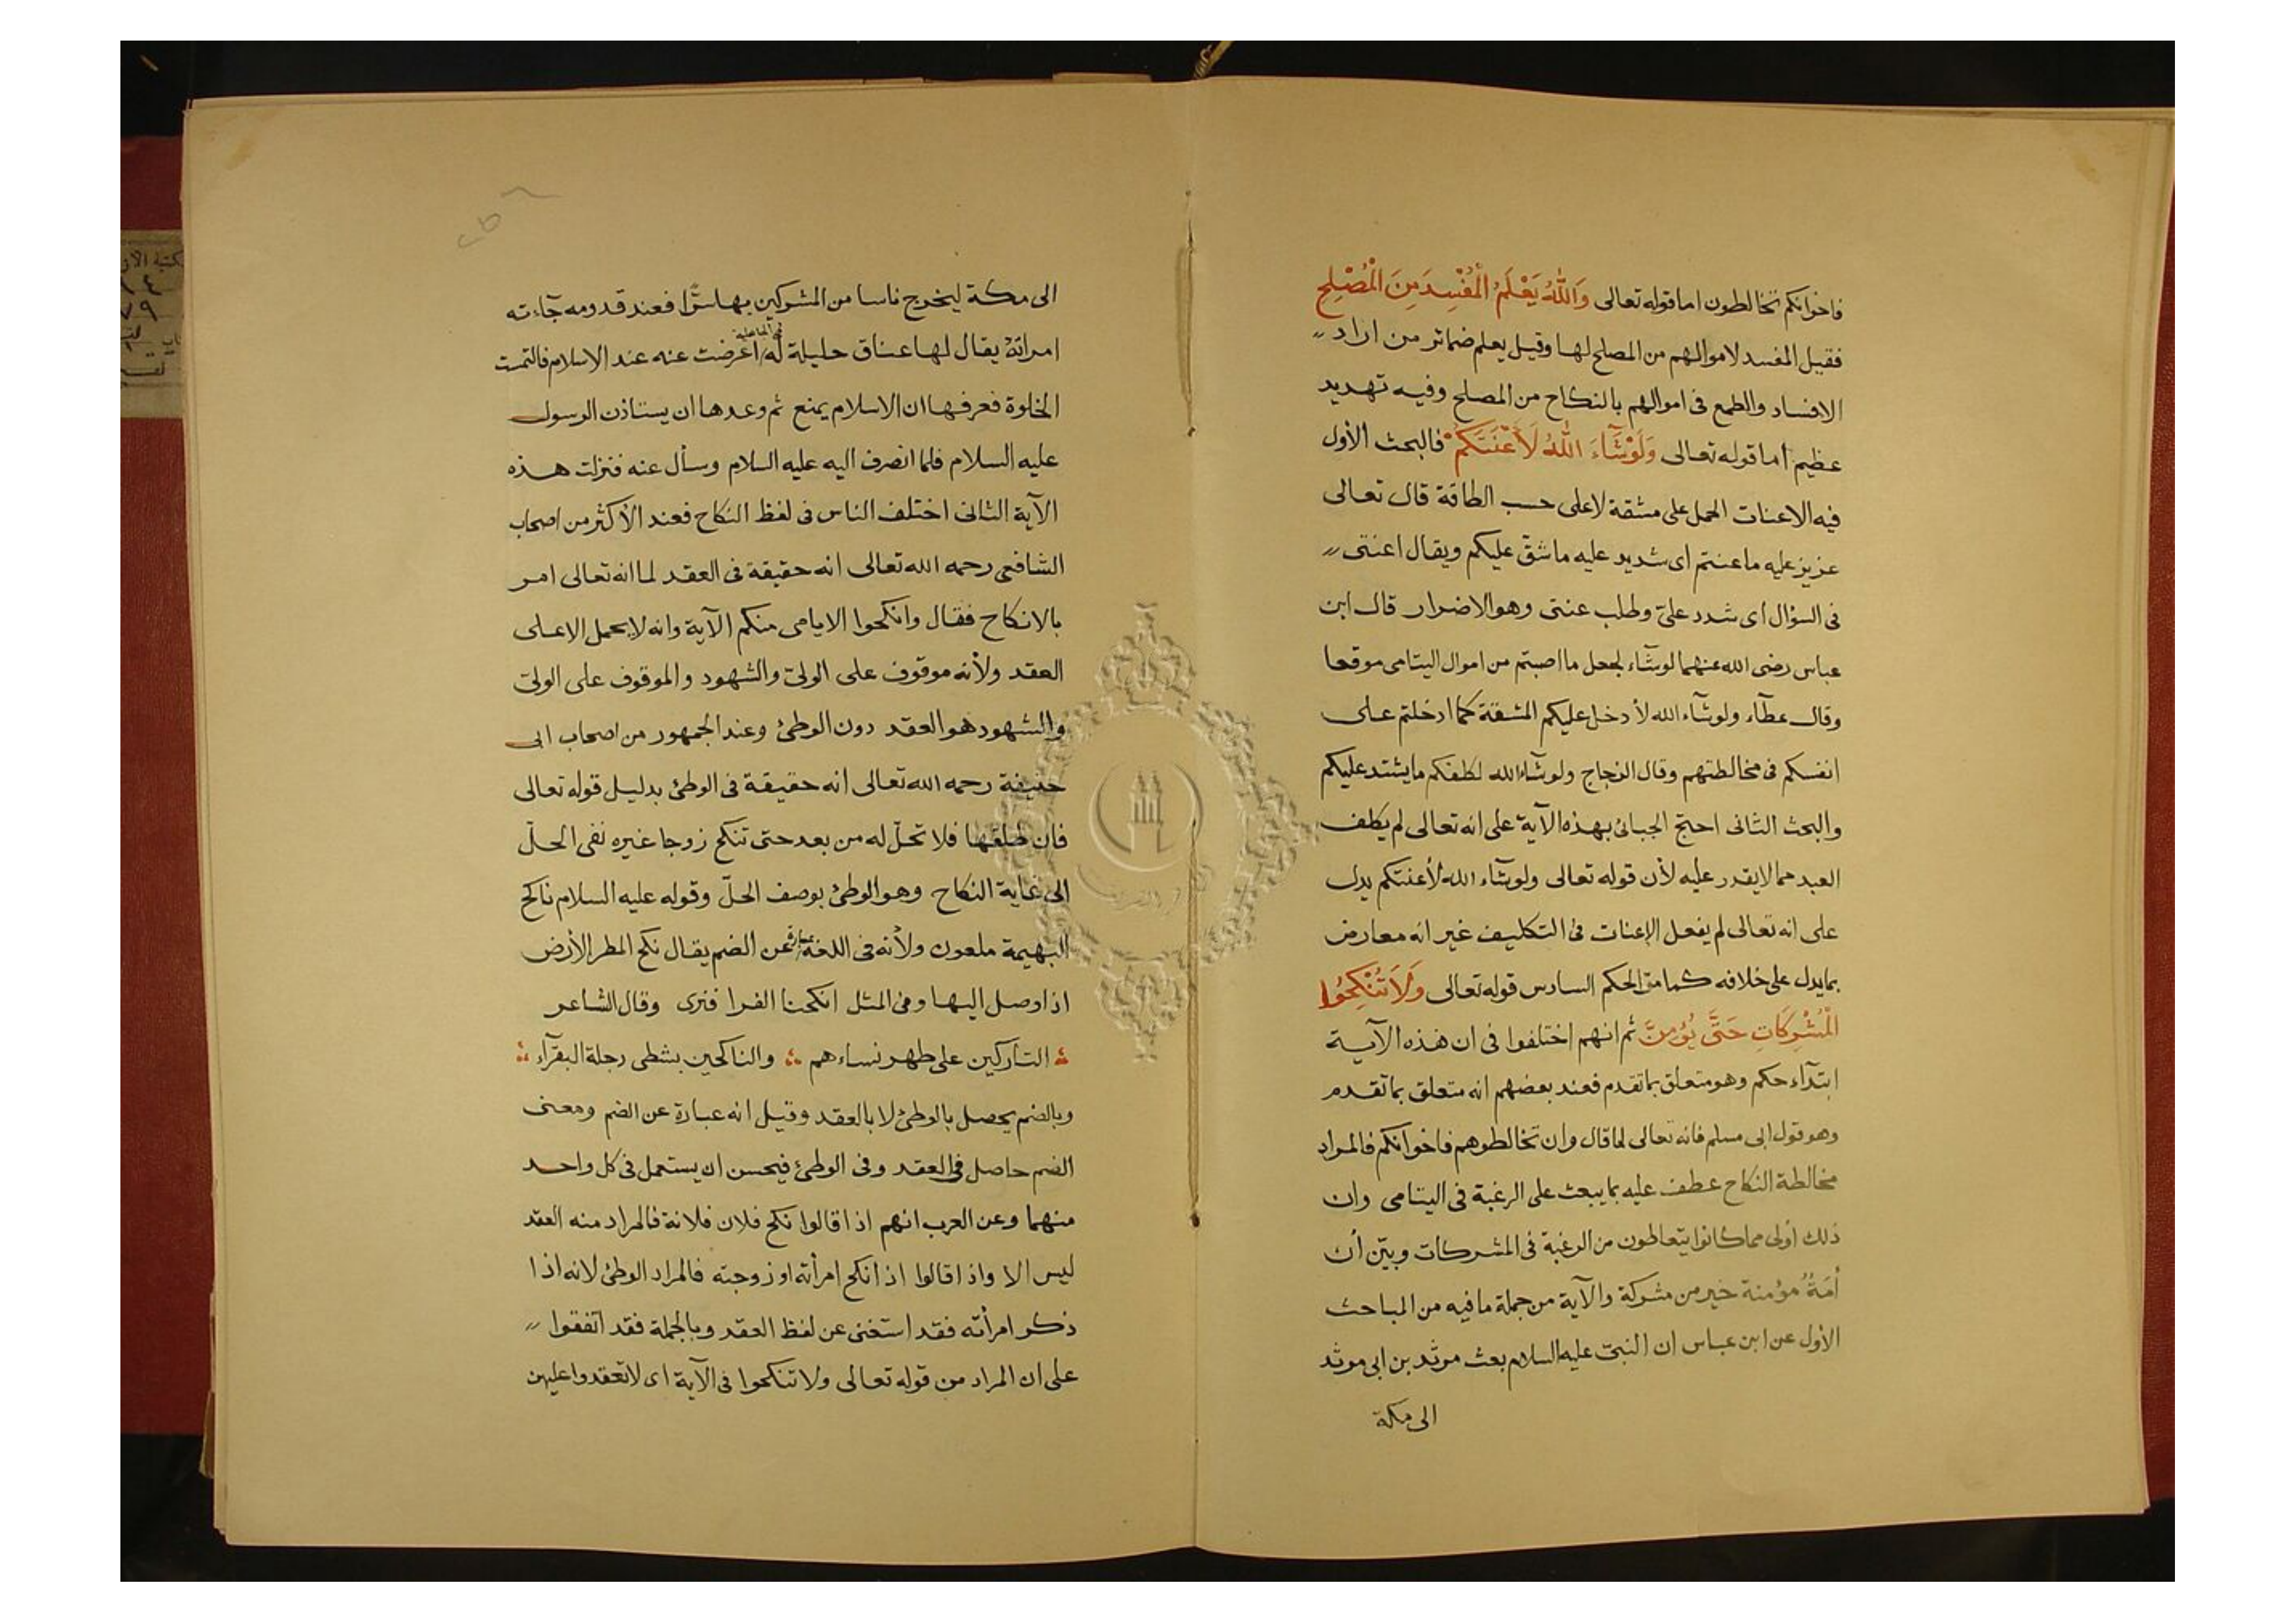 فاخوانكم تخالطون اما قوله تعالى وَاللهُ يَعْلَمُ الْمُفْسِدَ مِنَ الْمُصْلِحِ
فقيل المفسد لاموالهم من المصلح لها وقيل يعلم ضمائر من اراد
الافساد والطمع فى اموالهم بالنكاح من المصلح وفيه تهديد
عظيم أما قوله تعالى وَلَوْ شَآءَ اللهُ لَأَعْنَتَكُمْ فالبحث الأول
فيه الاعنات الحمل على مشقة لا على حسب الطاقة قال تعالى
عزيز عليه ما عنتم اى شديد عليه ما شقّ عليكم ويقال اعنتنى
فى السؤال اى شدد علىّ وطلب عنتى وهو الاضرار قال ابن
عباس رضى الله عنهما لو شآء لجعل ما اصبتم من اموال اليتامى موقعا
وقال عطآء ولو شآء الله لأدخل عليكم المشقة كما ادخلتم على
انفسكم فى مخالطتهم وقال الزجاج ولو شآء الله لكلفكم ما يشتد عليكم
والبحث الثانى احتج الجبائى بهذه الآية على انه تعالى لم يكلف
العبد مما لا يقدر عليه لأن قوله تعالى ولو شآء الله لأعنتكم يدل
على انه تعالى لم يفعل الإعنات فى التكليف غير انه معارض
بما يدل على خلافه كما مرّ الحكم السادس قوله تعالى وَلَا تُنْكِحُوا
الْمُشْرِكَاتِ حَتَّى يُؤْمِنَّ ثم انهم اختلفوا فى ان هذه الآية
ابتدآء حكم وهو متعلق بما تقدم فعند بعضهم انه متعلق بما تقدم
وهو قول ابى مسلم فانه تعالى لما قال وان تخالطوهم فاخوانكم فالمراد
مخالطة النكاح عطف عليه بما يبعث على الرغبة فى اليتامى وان
ذلك أولى مما كانوا يتعاطون من الرغبة فى المشركات وبيّن أن
أَمَةٌ مؤمنة خير من مشركة والآية من جملة ما فيه من المباحث
الأول عن ابن عباس ان النبىّ عليه السلام بعث مرثد بن ابى مرثد
الى مكة
الى مكة ليخرج ناسا من المشركين بها سرًّا فعند قدومه جآءته
امراتة يقال لها عناق حليلة له فى الجاهلية اعرضت عنه عند الاسلام فالتمست
الخلوة فعرفها ان الاسلام يمنع ثم وعدها ان يستاذن الرسول
عليه السلام فلما انصرف اليه عليه السلام وسأل عنه فنزلت هذه
الآية الثانى اختلف الناس فى لفظ النكاح فعند الأكثر من اصحاب
الشافعى رحمه الله تعالى انه حقيقة فى العقد لما انه تعالى امر
بالانكاح فقال وانكحوا الايامى منكم الآية وانه لا يحمل الا على
العقد ولأنه موقوف على الولىّ والشهود والموقوف على الولىّ
والشهود هو العقد دون الوطئ وعند الجمهور من اصحاب ابى
حنيفة رحمه الله تعالى انه حقيقة فى الوطئ بدليل قوله تعالى
فان طلقها فلا تحلّ له من بعد حتى تنكح زوجا غيره نفى الحلّ
الى غاية النكاح وهو الوطئ بوصف الحلّ وقوله عليه السلام ناكح
البهيمة ملعون ولأنه فى اللغة عبارة عن الضم يقال نكح المطر الأرض
اذا وصل اليها وفى المثل انكحنا الفرا فنرى وقال الشاعر
التاركين على طهر نساءهم والناكحين بشطى دجلة البقرآء
وبالضم يحصل بالوطئ لا بالعقد وقيل انه عبارة عن الضم ومعنى
الضم حاصل فى العقد وفى الوطئ فيحسن ان يستعمل فى كل واحد
منهما وعن العرب انهم اذا قالوا نكح فلان فلانة فالمراد منه العقد
ليس الا واذا قالوا اذ انكح امرأته او زوجته فالمراد الوطئ لانه اذا
ذكر امرأته فقد استغنى عن لفظ العقد وبالجملة فقد اتفقوا
على ان المراد من قوله تعالى ولا تنكحوا فى الآية اى لا تعقدوا عليهن